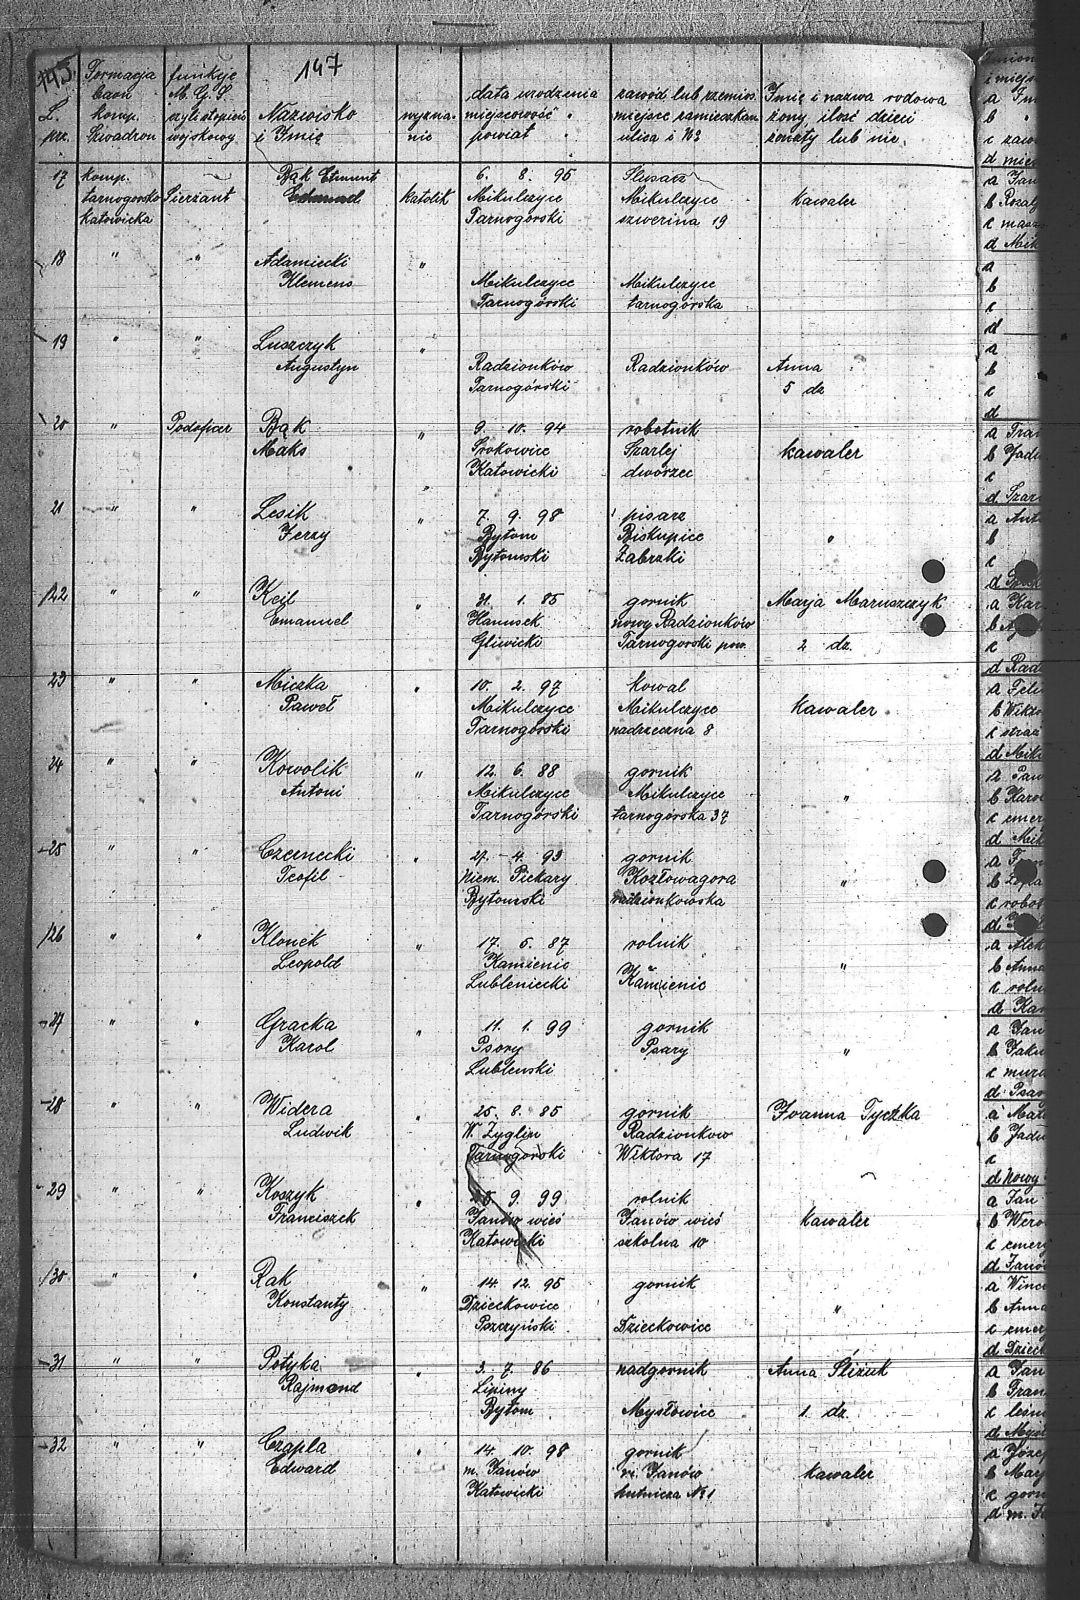 145. Formacja funkcje 147
baon M.G.S. data urodzenia zawód lub przemiosł Imię i nazwa rodowa
L. komp. czyli stopień Nazwisko wyzna- miejscowość " miejsce zamieszkan. żony, ilość dzieci
prz. Szwadron wojskowy i Imię nie powiat " ulica i № żonaty lub nie.
17 komp. Bąk Etmunt 6. 8. 95 Ślusarz
tarnogorsko Sierżant katolik Mikulczyce Mikulczyce kawaler
katowicka Tarnogórski szwerina 19
18 " " Adamiecki "
Klemens Mikulczyce Mikulczyce
Tarnogórski tarnogórska
19 " " Luszczyk "
Augustyn Radzionków Radzionków Anna
Tarnogórski 5 dz
20 " Podoficer Bąk " 9. 10. 94 robotnik
Maks Szarlej kawaler
Katowicki dworzec
21 " " Lesik " 7. 9. 98 pisarz
Jerzy Bytom Biskupice "
Bytomski Zabrzki
22 " " Keil " 31. 1. 85 gornik Marja Maruszczyk
Emanuel Hanusek nowy Radzionków
Gliwicki Tarnogorski pow. 2 dz.
23 " " Miczka " 10. 2. 97 kowal
Paweł Mikulczyce Mikulczyce kawaler
Tarnogórski nadrzeczna 8
24 " " Kowolik " 12. 6. 88 gornik
Antoni Mikulczyce Mikulczyce "
Tarnogórski tarnogórska 37
25 " " Czernecki " 27. 4. 93 gornik
Teofil Niem. Piekary Kozłowagora "
Bytomski radzionkowska
26 " " Klonek " 17. 5. 87 rolnik
Leopold Kamienic Kamienic "
Lubleniecki
27 " " Gracka " 11. 1. 99 gornik
Karol Psory Psary "
Lublenski
28 " " Widera " 25. 8. 85 gornik Joanna Tyczka
Ludwik W. Zyglin Radzionkow
Tarnogorski Wiktora 17
29 " " Koszyk " 9. 99 rolnik
Franciszek Janów wieś Janów wieś kawaler
Katowicki szkolna 10
30 " " Rak " 14. 12. 95 gornik
Konstanty Dzieckowice "
Pszczyński Dzieckowice
31 " " Potyka " 3. 7. 86 nadgornik Anna Ślizuk
Rajmond Lipiny
Bytom Mysłowice 1. dz.
32 " " Czapla " 14. 10. 98 gornik
Edward m. Janów m. Janów kawaler
Katowicki hutnicza №1